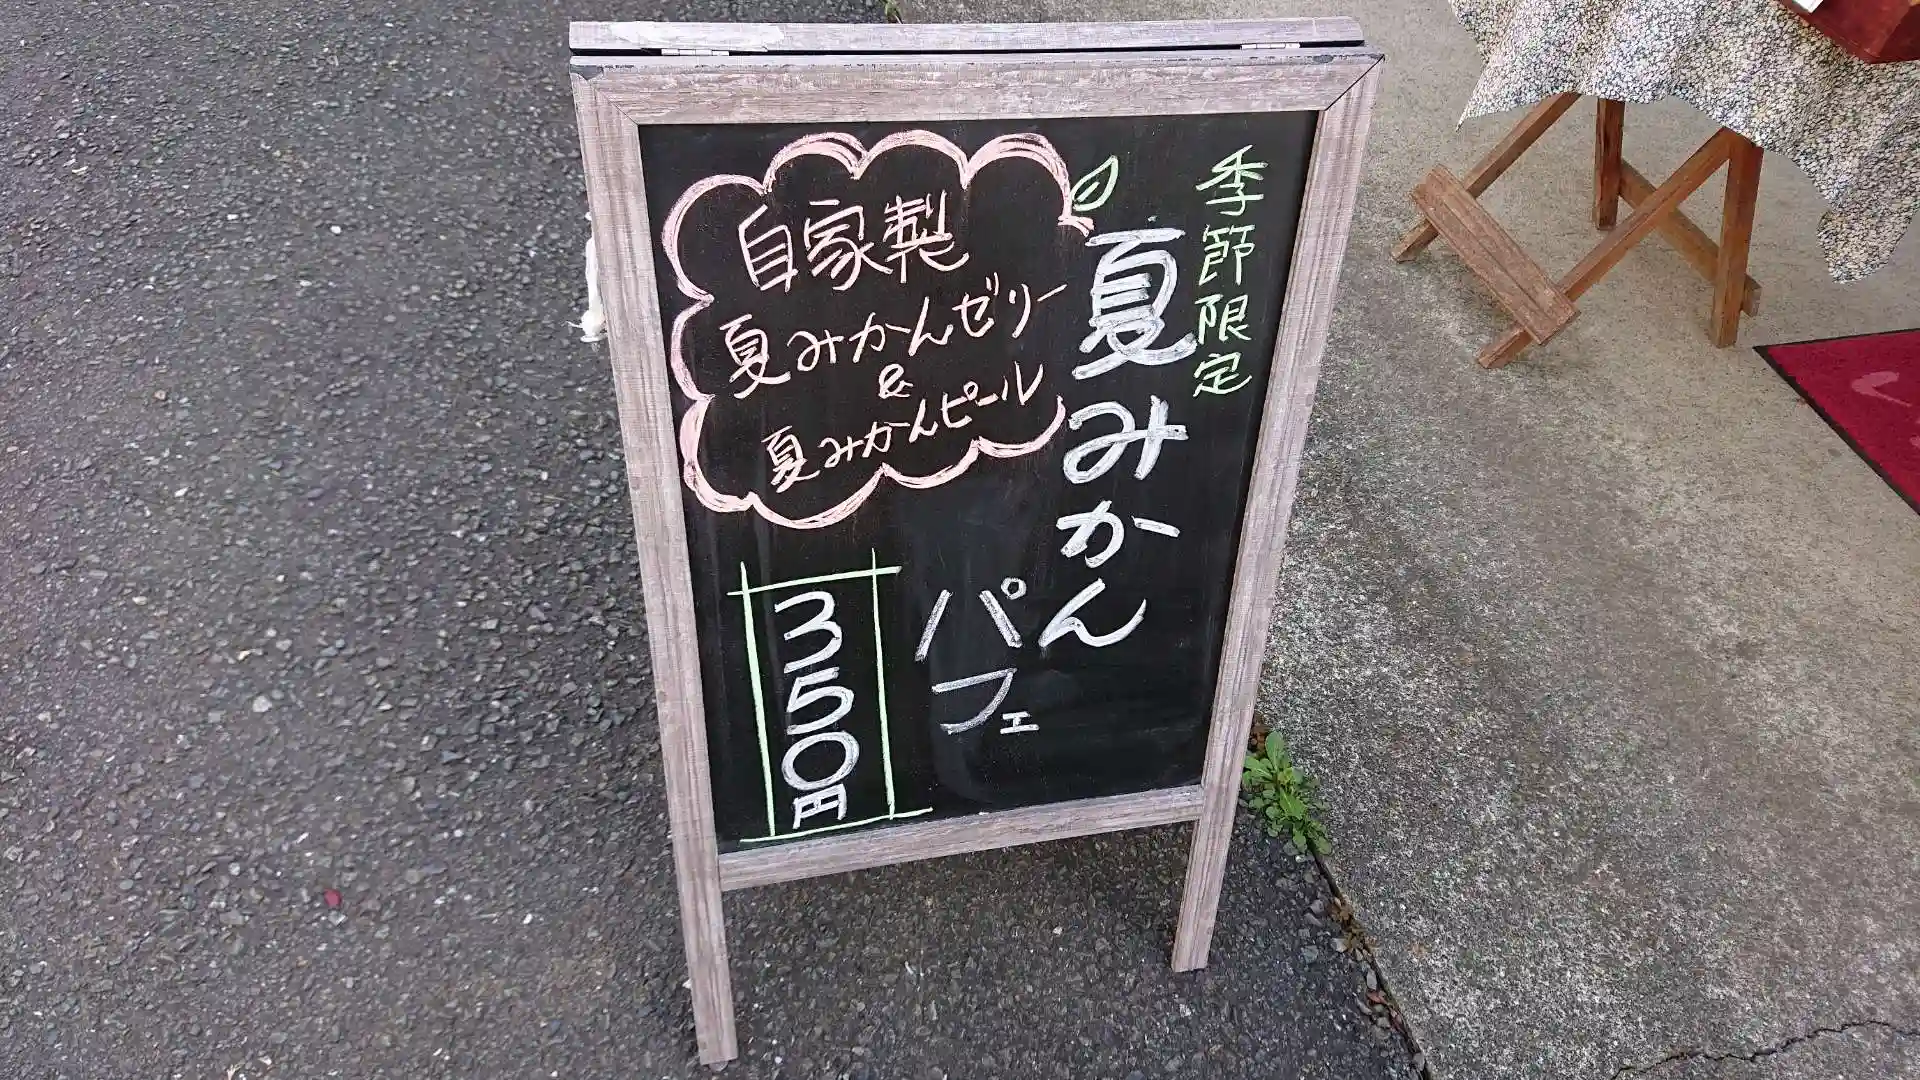 季節限定
夏みかん
パフェ
自家製
夏みかんゼリー
&
夏みかんピール
350円